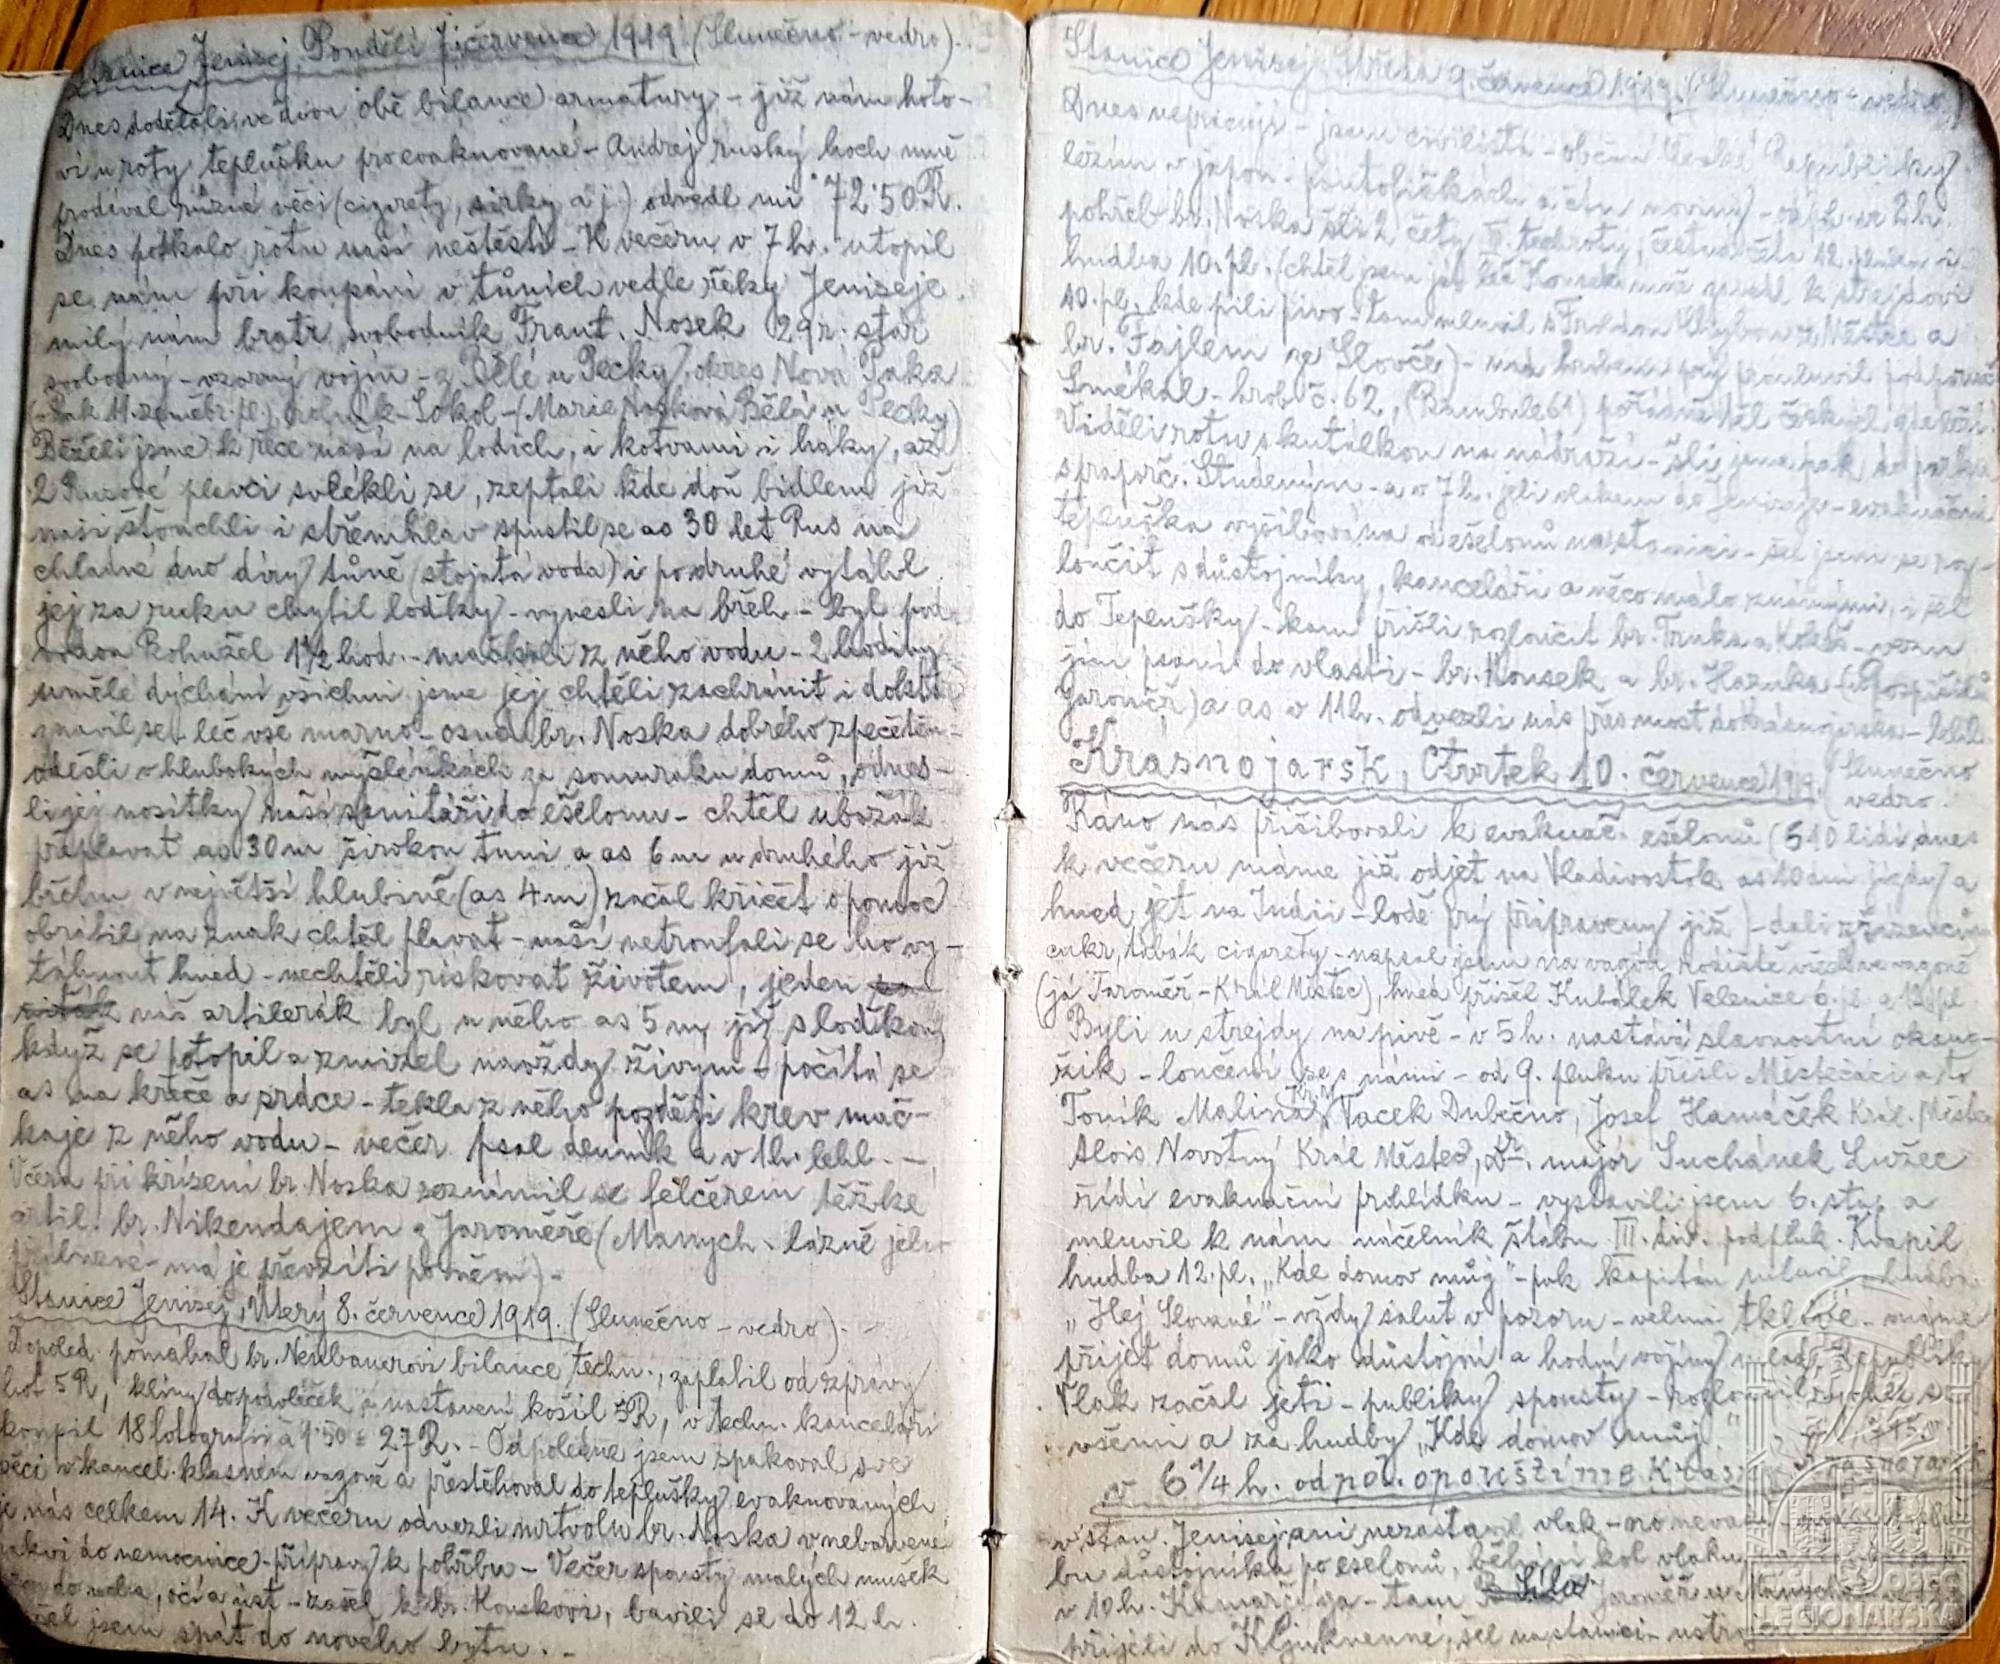 Stanice Jenisej, Pondělí 7. července 1919. (Slunečno - vedro).
Dnes dodělali ve dvou obě bilance armatury - již nám hoto-
vi u roty teplušku pro evakuované - Andrej ruský hoch mně
prodával různé věci (cigarety, sirky a j.) odvedl mi 72·50 R.
Dnes potkalo rotu naši neštěstí - K večeru v 7 h. utopil
se nám při koupání v tůních vedle řeky Jeniseje
milý nám bratr svobodník Frant. Nosek 29 r. stár
svobodný - vzorný vojín - z Bělé u Pecky, okres Nová Paka
(- Rak. 11. zeměbr. pl.), rolník - Sokol - (Marie Nosková Bělá u Pecky)
Běželi jsme k řece naši na lodích, i kotvami i háky, až
2 Rusové plavci svlékli se, zeptali kde doň bidlem již
naši šťouchli i střemhlav spustil se as 30 let Rus na
chladné dno díry tůně (stojatá voda) i podruhé vytáhl
jej za ruku chytil loďky - vynesli na břeh - byl pod
vodou bohužel 1½ hod. - mačkali z něho vodu - 2 hodiny
umělé dýchání všichni jsme jej chtěli zachránit i doktor
se leč vše marno - osud br. Noska dobrého zpečetěn -
odešli v hlubokých myšlenkách za soumraku domů, odnes-
li jej nosítky naši sanitáři do ešelonu - chtěl ubožák
přeplavat as 30 m širokou tuni a as 6 m u druhého již
břehu v největší hlubině (as 4 m) začal křičet o pomoc
obrátil na znak chtěl plavat - naši netroufali se ho vy-
táhnout hned - nechtěli riskovat životem, jeden
náš artilerák byl u něho as 5 m, již s loďkou
když se potopil a zmizel navždy živým - počítá se
as na křeče a srdce - tekla z něho později krev mač-
kaje z něho vodu - večer psal deník a v 1 h. lehl. -
Včera při kříšení br. Noska seznámil se felčerem těžké
artil. br. Nikendajem z Jaroměře (Manych. lázně jeho
má je převzíti po něm) -
Stanice Jenisej, Úterý 8. července 1919. (Slunečno - vedro). -
Dopoled. pomáhal br. Neubauerovi bilance techn., zaplatil od zprávy
bot 5 R, klíny do podvléček a nastavení košil R, v techn. kanceláři
koupil 18 fotografií à 1·50 = 27 R. - Odpoledne jsem spakoval své
věci v kancel. klasném vagoně a přestěhoval do teplušky evakuovaných
je nás celkem 14. K večeru odvezli mrtvolu br. Noska v nebarvené
rakvi do nemocnice - přípravy k pohřbu - Večer spousty malých mušek
do očí a úst - zašel k br. Kouskovi, bavili se do 12 h.
šel jsem spát do nového bytu. -
Stanice Jenisej, Středa 9. července 1919. (Slunečno - vedro)
Dnes nepracuji - jsem civilista - občan České Republiky
ležím v japon. pantoflíčkách a čtu noviny - odpol. ve 2 h.
pohřeb br. Noska šli 2 čety II. tech roty, čestná četa 12. pluku i
hudba 10. pl. (chtěl jsem jít leč Kousek mně vedl k strejdovi
10. pl. kde pili pivo - tam mluvil s z Městce a
br. Fajlem ze Slovče) - nad hrobem prý promluvil podporuč.
Smékal - hrob č. 62, (Bambule 61) pořádně těl českých
Viděli rotu s kutálkou na nádraží - šli jsme pak do parku
s praporč. Studeným - a v 7 h. jeli vlakem do Jeniseje - evakuační
tepluška vyšibována od ešelonů na stanici - šel jsem se roz-
loučit s důstojníky, kanceláří a něco málo známými, i šel
do Teplušky - kam přišli rozloučit br. Truka a - vezu
jim psaní do vlasti - br. Kousek a br. Hazuka (u Pospíšilů
Jaroměř) a as v 11 h. odvezli nás přes most do Krasnojarska - lehl.
Krasnojarsk, Čtvrtek 10. července 1919. (Slunečno
vedro.
Ráno nás přišibovali k evakuač. ešelonů (510 lidí, dnes
k večeru máme již odjet na Vladivostok as 10 dní jízdy a
hned jet na Indii - lodě prý připraveny již) - dali zřízencům
cukr, tabák cigarety - napsal jsem na vagón bydliště všech ve vagoně
(já Jaroměř - Král. Městec), hned přišel Kubálek Velenice 6. pl. a 12. pl.
Byli u strejdy na pivě - v 5 h. nastává slavnostní okam-
žik - loučení se s námi - od 9. pluku přišli Městečáci a to
Toník Malina, Vacek Dubečno, Josef Hamáček Král. Městec
Alois Novotný Král. Městec, dr. major Suchánek Lužec
řídí evakuační prohlídku - vystavili jsem 6. stup. a
mluvil k nám náčelník štábu III. div. podpluk. Kvapil
hudba 12. pl. „Kde domov můj" - pak kapitán mluvil a hudba
„Hej Slované" - vždy salut v pozoru - velmi tklivé - máme
přijet domů jako důstojní a hodní vojíny mlad. Republiky
Vlak začal jeti - publiky spousty - rozloučil
všemi a za hudby „Kde domov můj."
v 6¼ h. odpol. opouštíme Krasnojarsk
v stan. Jenisej ani nezastavil vlak -
bu důstojníka po ešelonů, běhání kol vlaku
v 10 h. Kamarčaga - tam Síla Jaroměř u Manycha
přijeli do Kljukvennė, šel na stanici -
ČESKOSLOVENSKÁ OBEC
LEGIONÁŘSKÁ